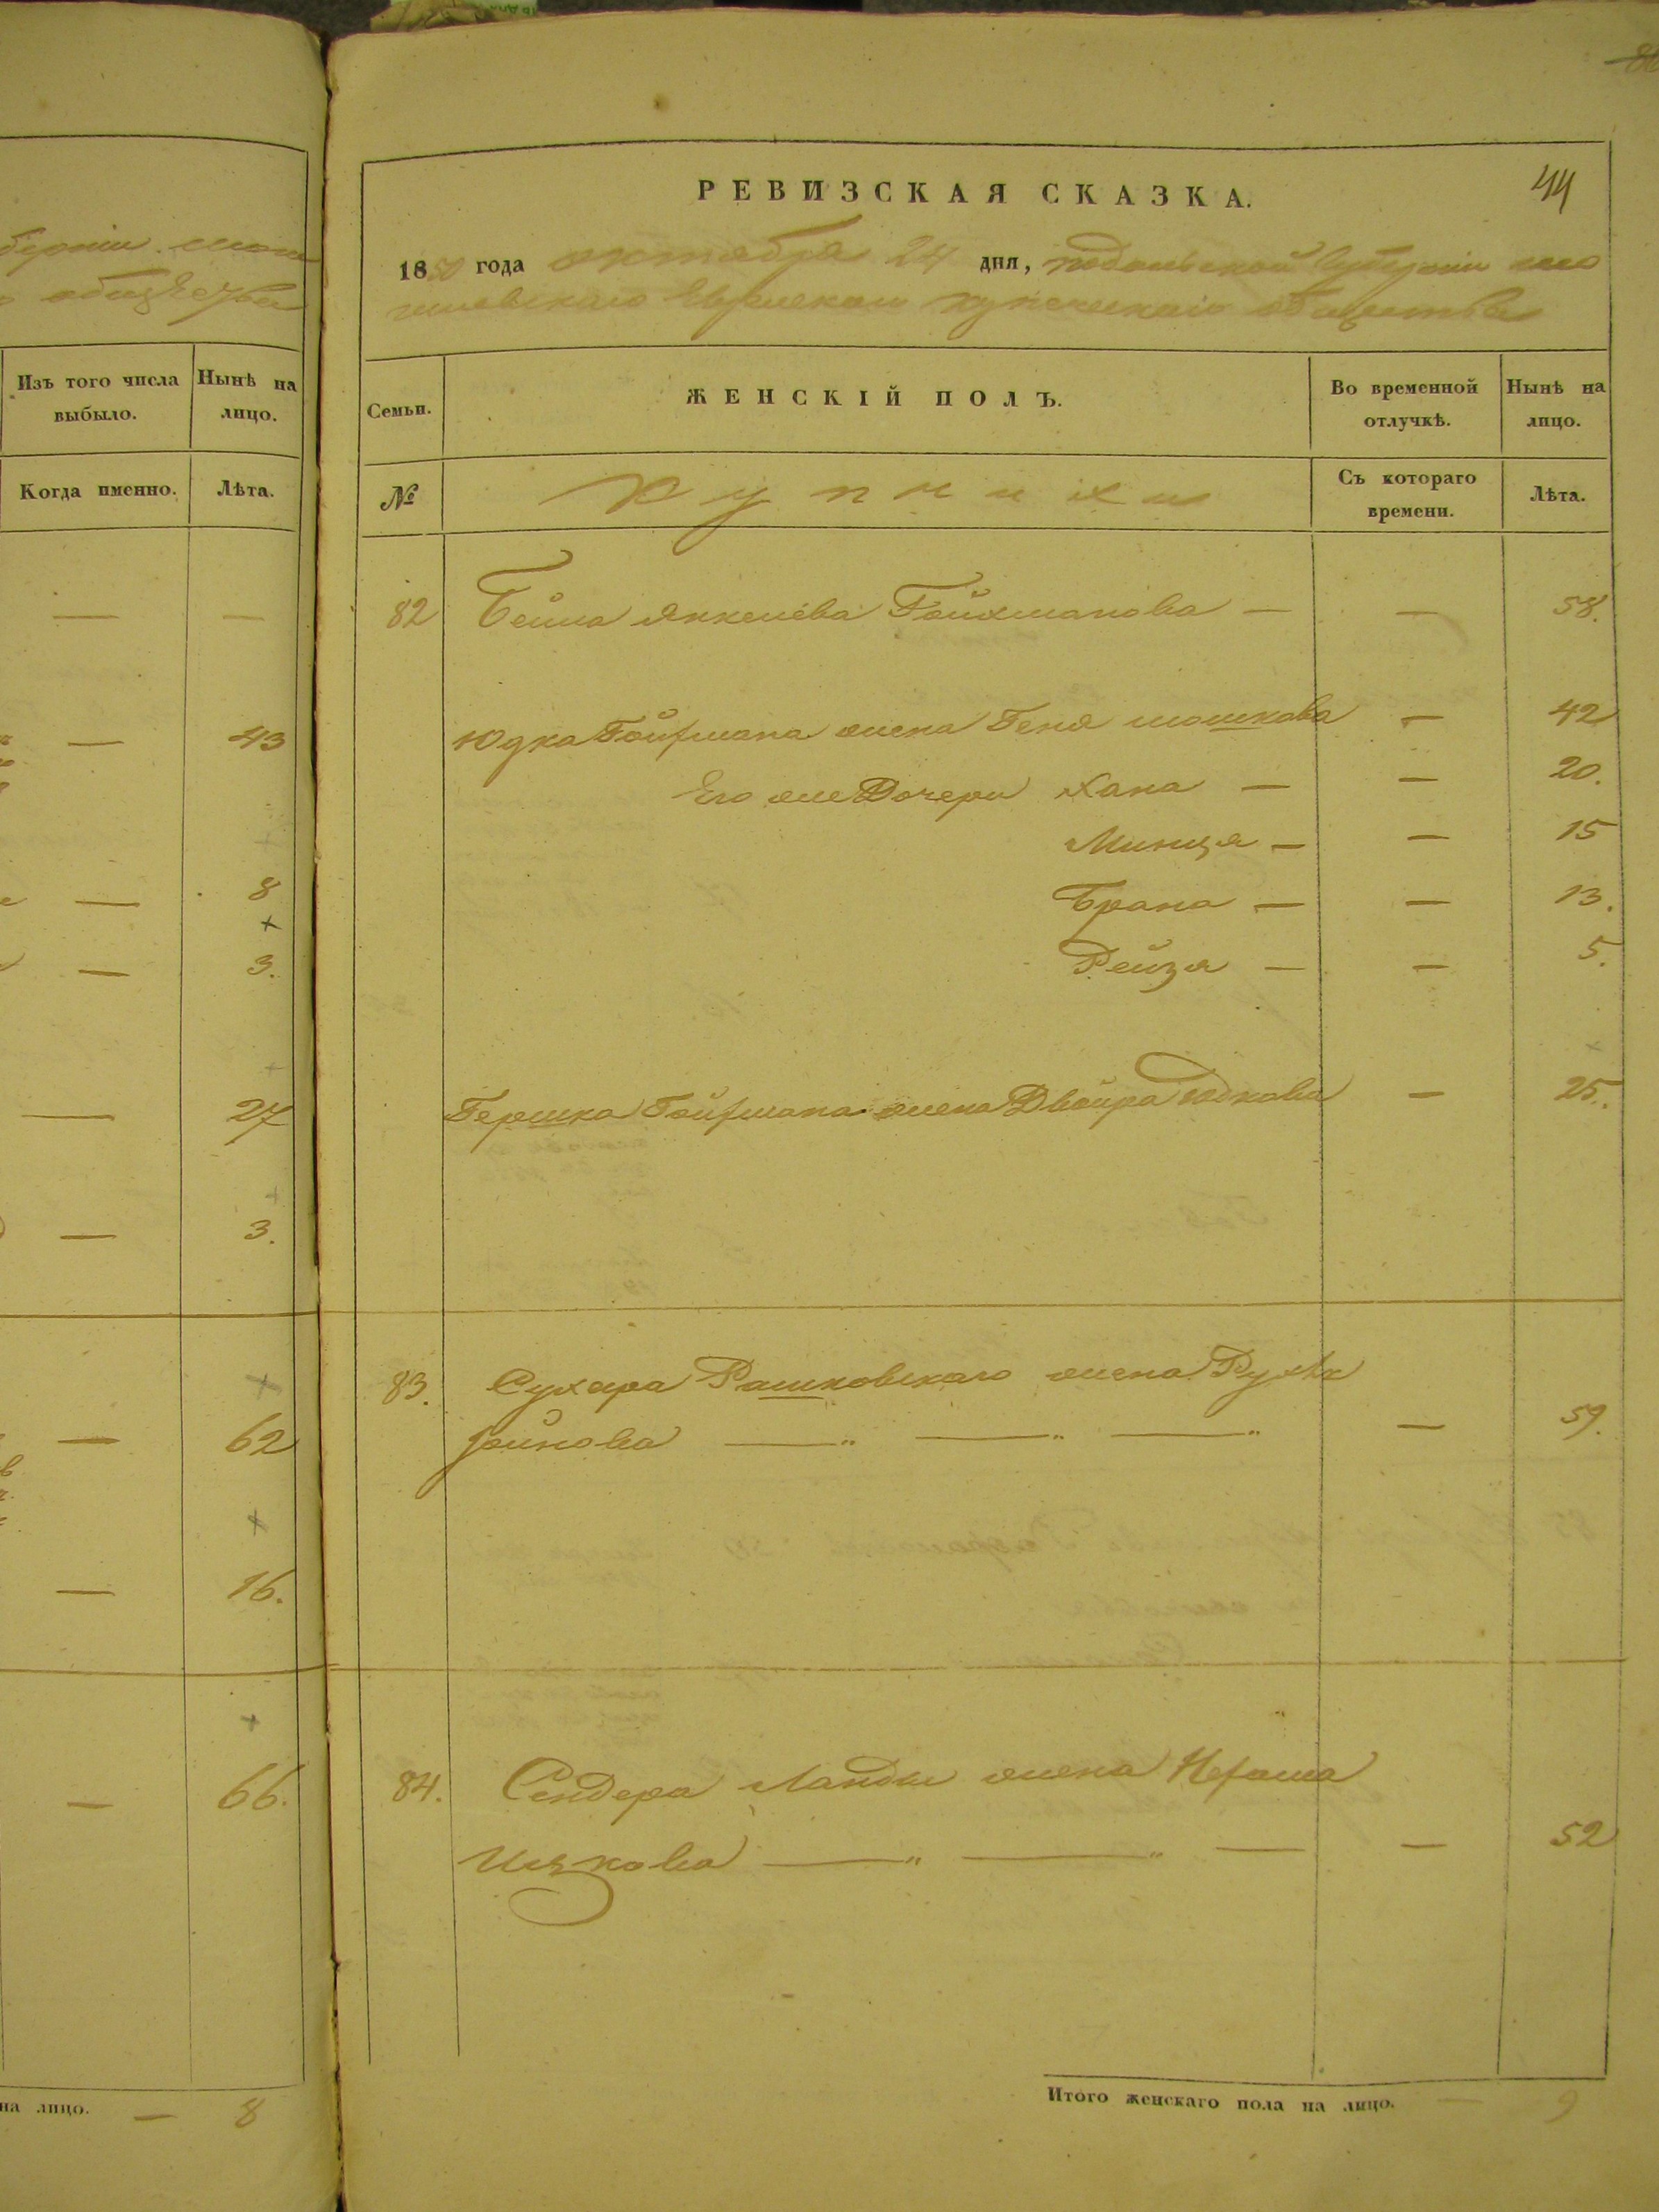 берніи
обществ
Изъ того числа выбыло.
Нынѣ на лицо.
Когда именно.
Лѣта.
— —
— 43
— 8
— 3.
— 27
— 3.
— 62
— 16.
— 66.
на лицо. — 8
44
РЕВИЗСКАЯ СКАЗКА.
1850 года октября 24 дня, подольской губерніи мо
гилевскаго Еврейскаго купеческаго общества
Семьи.
ЖЕНСКІЙ ПОЛЪ.
Во временной отлучкѣ.
Нынѣ на лицо.
№
Купчихи
Съ котораго времени.
Лѣта.
82 Бейла Янкелева Гойхманова — — 58.
Юдка Гойфмана жена Геня мошкова — 42
Его же Дочери Хана — — 20.
Минця — — 15
Брана — — 13.
Рейзя — — 5.
Гершка Гойфмана жена Двойра Юдкова — 25.
83. Сухера Рашковскаго жена Рухля
фойнова — — — — 59.
84. Сендера Ланды жена
Ицкова — — — — 52
Итого женскаго пола на лицо. — 9